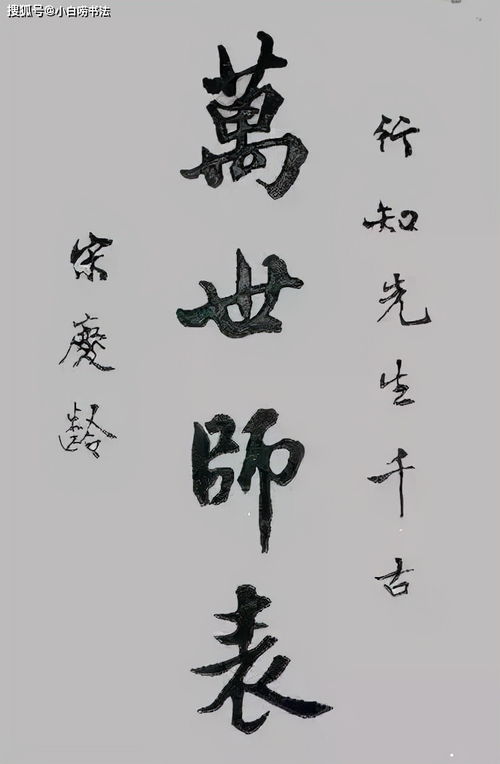 搜狐号@小白唠书法
行知先生千古
萬世師表
宋慶龄